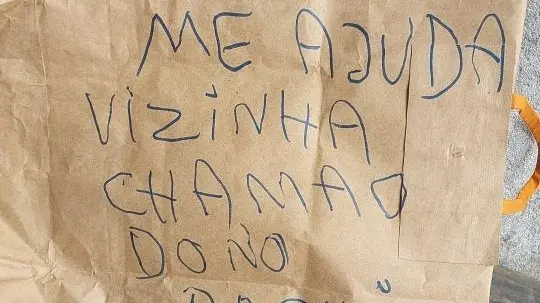 ME AJUDA
VIZINHA
CHAMA O
DONO